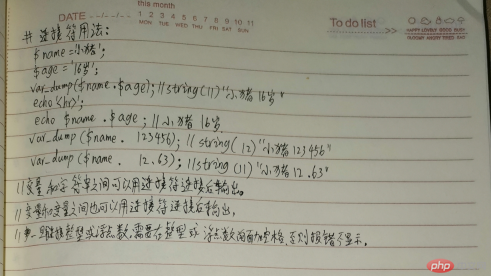 this month
DATE 1 2 3 4 5 6 7 8 9 10 11
MON TUE WED THU FRI SAT SUN
To do list
HAPPY LOVELY GOOD BUSY
# 连接符用法:
$name='小猪';
$age='16岁';
var_dump($name.$age); //string(11)"小猪16岁"
echo'<hr>';
echo $name.$age; //小猪16岁
var_dump($name. 123456); //string(12)"小猪123456"
var_dump($name. 12.63); //string(11)"小猪12.63"
//变量和字符串之间可以用连接符连接后输出。
//变量和变量之间也可以用连接符连接后输出。
//连接整型或浮点数,需要在整型或浮点数前面加空格,否则报错不显示。
php